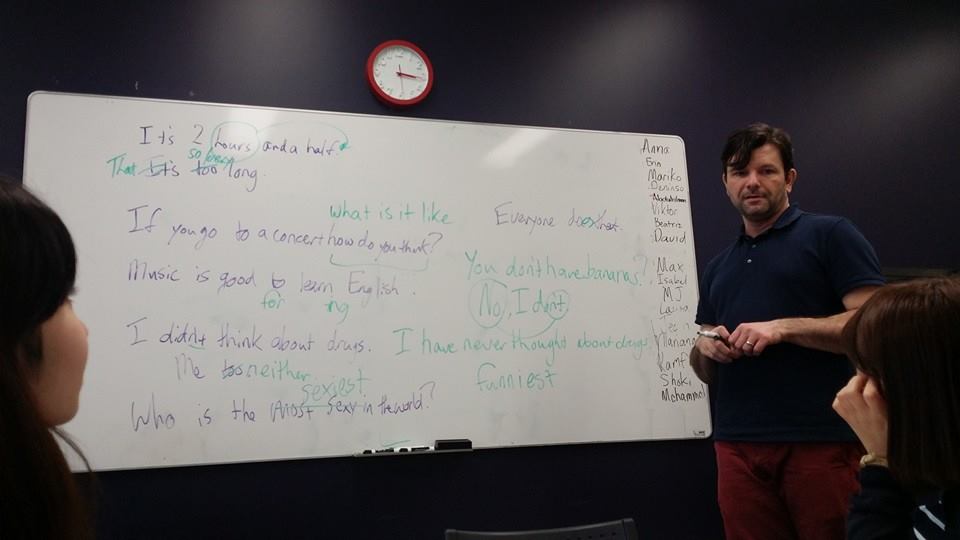 It's 2 hours and a half.
so long
That It's too long.
what is it like
If you go to a concert how do you think?
Music is good to learn English.
for ng
I didn't think about drugs.
Me too neither.
sexiest
Who is the most sexy in the world?
Everyone
You don't have bananas?
No, I don't.
I have never thought about drugs
funniest
Anna
Erin
Mariko
Viktor
Beatriz
David
Max
Isabel
MJ
Shoki